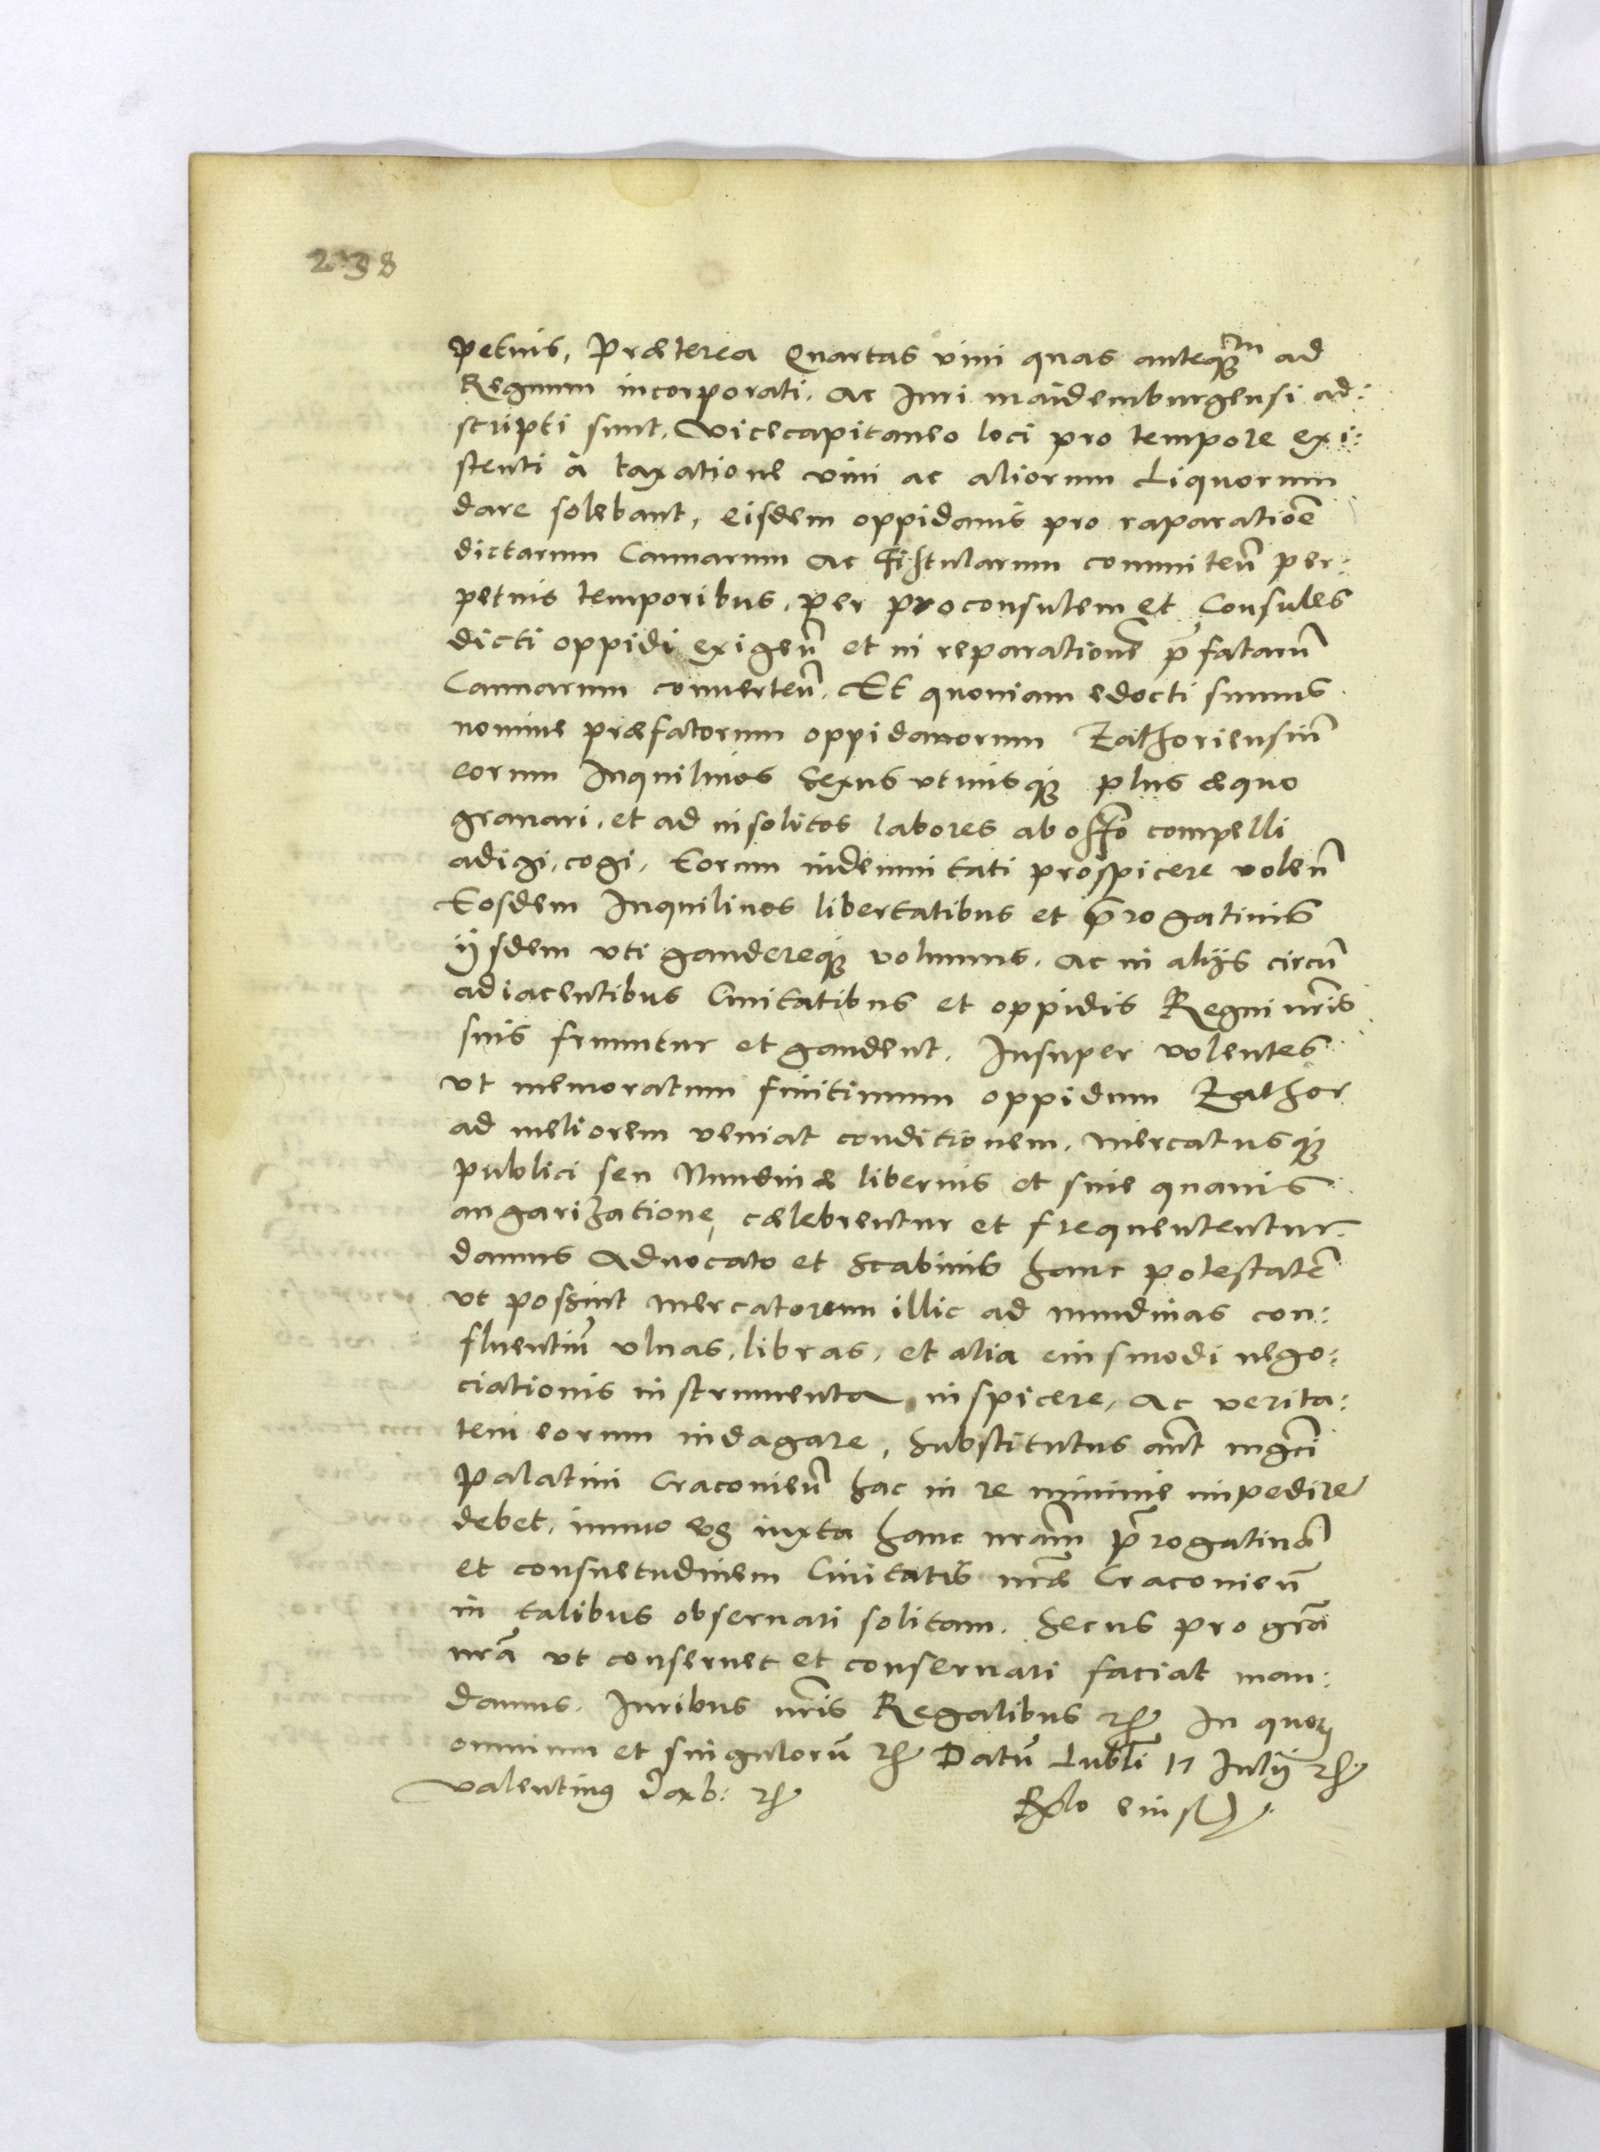 238
petuis, Præterea Quartas vini quas anteqꝫm ad
Regnum incorporati. Ac Iuri maidemburgensi ad:
scripti sunt. Vicecapitaneo loci pro tempore exi:
stenti à taxatione vini ac aliorum Liquorum
dare solebant, eisdem oppidanis pro raparatiōe
dictarum Cannarum Ac Fistularum commiteñ per:
petuis temporibus. per proconsulem et Consules
dicti oppidi exigeñ et in reparationē p̄fatarū
Cannarum conuerteñ. Et quoniam edocti sumus
nomine præfatorum oppidanorum Zathoriensiū
eorum Inquilinos Sexus vtriusqꝫ plus æquo
grauari, et ad insolitos labores ab offō compelli
adigi, cogi, Eorum indemnitati prospicere voleñ
Eosdem Inquilinos libertatibus et p̄rogatiuis
ijsdem vti gaudereqꝫ volumus. ac in alijs circū
adiacentibus Ciuitatibus et oppidis Regni nr̄is
suis fruuntur et gaudent. Insuper volentes
vt memoratum finitimum oppidum Zathor
ad meliorem veniat conditionem. mercatusqꝫ
publici seu Nundinæ liberius et sine quauis
angarizatione, cælebrentur et frequententur.
damus Aduocato et Scabinis hanc potestatē
vt possint mercatorum illic ad nundinas con:
fluentiū vlnas, libras, et alia eiusmodi nego:
ciationis instrumenta inspicere, Ac verita:
tem eorum indagare, Substitutus aūt mgc̄i
palatini Cracouieñ hac in re minime impedire
debet, immo eos iuxta hanc nr̄am p̄rogatiuā
et consuetudinem Ciuitatis nr̄æ Cracouieñ
in talibus obseruari solitam. Secus pro grā
nr̄ā vt conseruet et conseruari faciat man:
damus. Iuribus nr̄is Regalibus ꝛc In quoꝝ
omnium et singulorū ꝛc Datū Lubli 17 Iulij ꝛc
Valentinꝰ Daxb: ꝛc
Rlo eiusd.